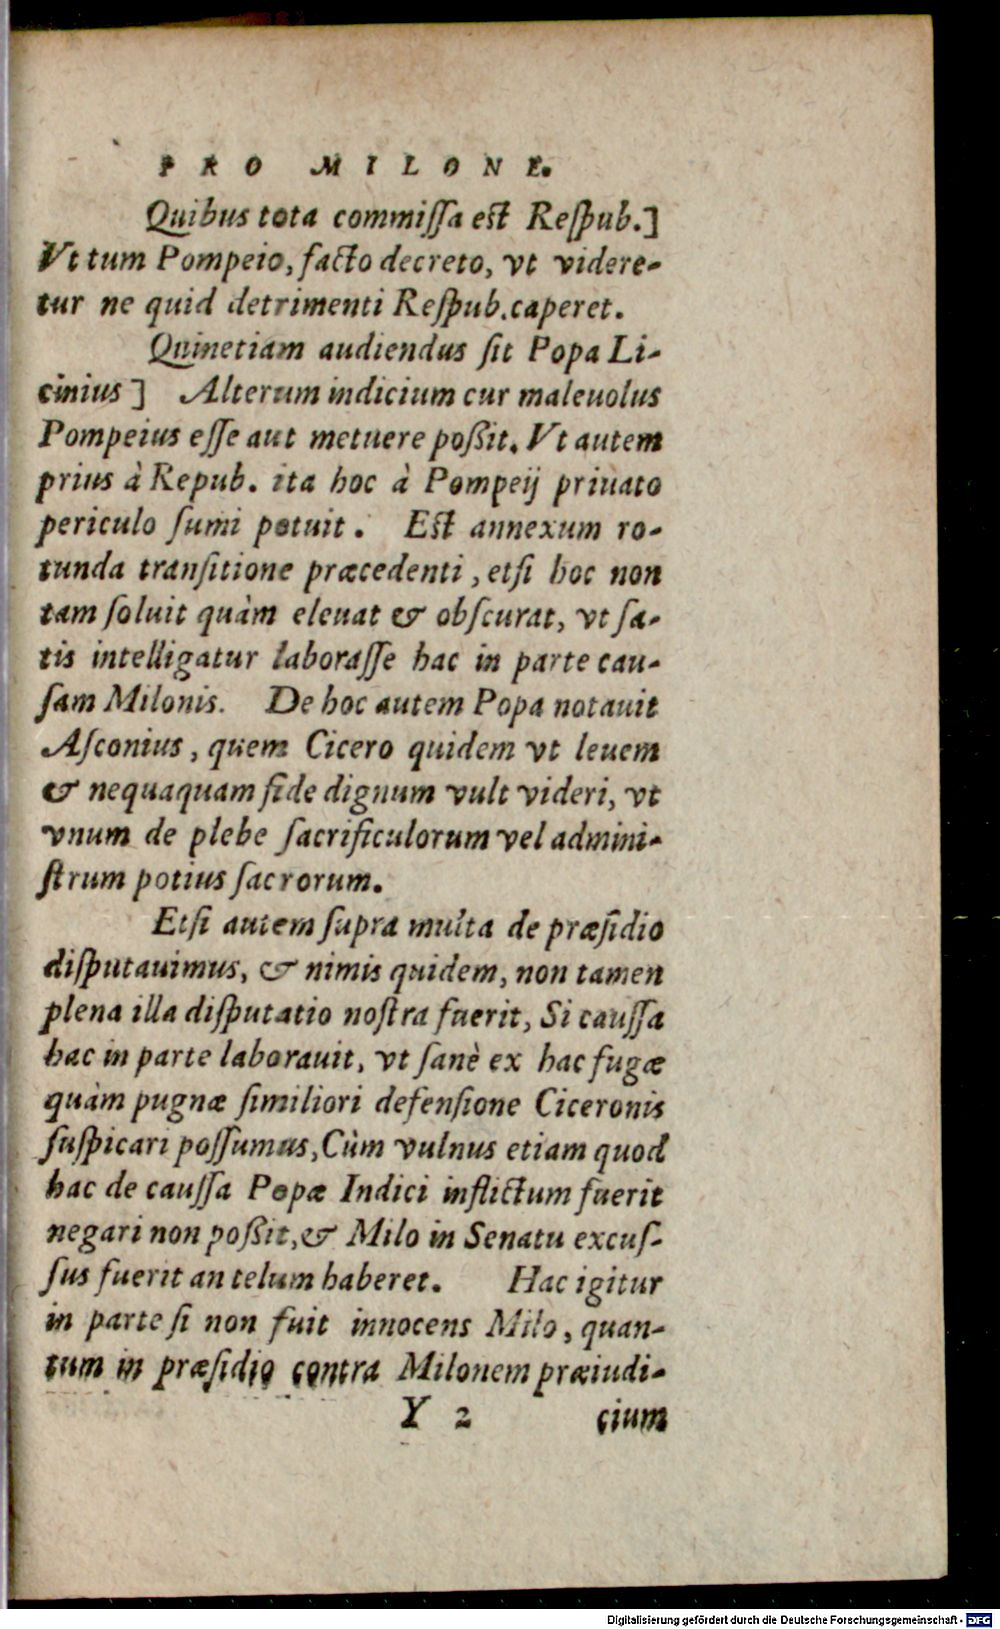 PRO MILONE.
Quibus tota commiſſa eſt Reſpub.]
Vt tum Pompeio, facto decreto, vt videre-
tur ne quid detrimenti Reſpub. caperet.
Quinetiam audiendus ſit Popa Li-
cinius] Alterum indicium cur maleuolus
Pompeius eſſe aut metuere poßit. Vt autem
prius à Repub. ita hoc à Pompeij priuato
periculo ſumi potuit. Eſt annexum ro-
tunda tranſitione præcedenti, etſi hoc non
tam ſoluit quàm eleuat & obſcurat, vt ſa-
tis intelligatur laboraſſe hac in parte cau-
ſam Milonis. De hoc autem Popa notauit
Aſconius, quem Cicero quidem vt leuem
& nequaquam fide dignum vult videri, vt
vnum de plebe ſacrificulorum vel admini-
ſtrum potius ſacrorum.
Etſi autem ſupra multa de præſidio
diſputauimus, & nimis quidem, non tamen
plena illa diſputatio noſtra fuerit, Si cauſſa
hac in parte laborauit, vt ſanè ex hac fugæ
quàm pugnæ ſimiliori defenſione Ciceronis
ſuſpicari poſſumus, Cùm vulnus etiam quod
hac de cauſſa Popæ Indici inflictum fuerit
negari non poßit, & Milo in Senatu excuſ-
ſus fuerit an telum haberet. Hac igitur
in parte ſi non fuit innocens Milo, quan-
tum in præſidio contra Milonem præiudi-
Y 2 cium
Digitalisierung gefördert durch die Deutsche Forschungsgemeinschaft - DFG